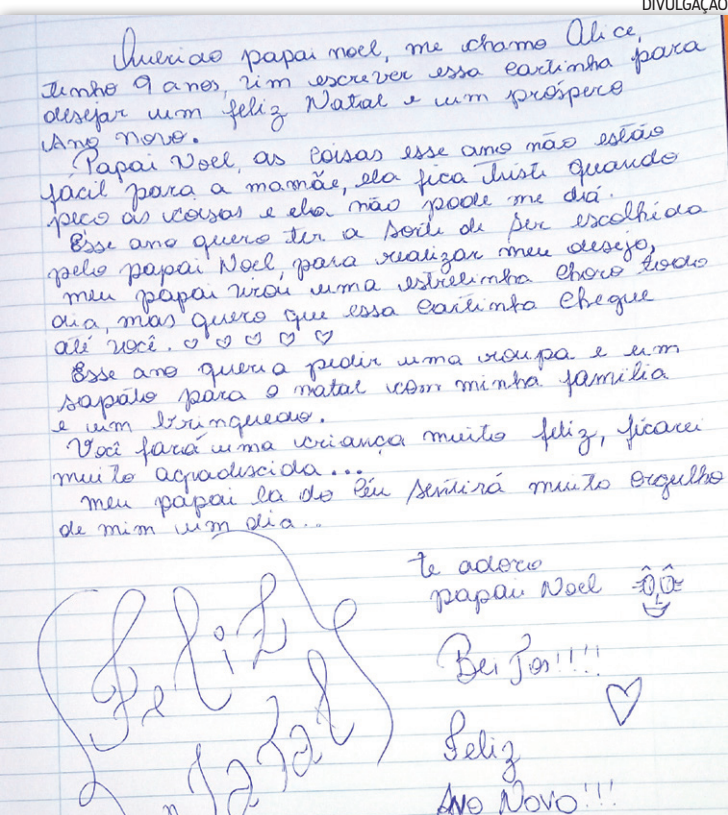 DIVULGAÇÃO
Querido papai noel, me chamo Alice,
tenho 9 anos, vim escrever essa cartinha para
desejar um feliz Natal e um prospero
Ano novo.
Papai Noel, as coisas esse ano não estão
fácil para a mamãe, ela fica triste quando
peco as coisas e ela não pode me dá.
Esse ano quero ter a sorte de ser escolhida
pelo papai Noel, para realizar meu desejo,
meu papai virou uma estrelinha choro todo
dia, mas quero que essa cartinha chegue
até você. ♡ ♡ ♡ ♡ ♡
Esse ano queria pedir uma roupa e um
sapato para o natal com minha familia
e um brinquedo.
Você fará uma criança muito feliz, ficarei
muito agradescida...
meu papai la do Céu sentirá muito orgulho
de mim um dia...
te adoro
papai Noel
Feliz
Natal
Beijos!!!!
Feliz
Ano Novo!!!